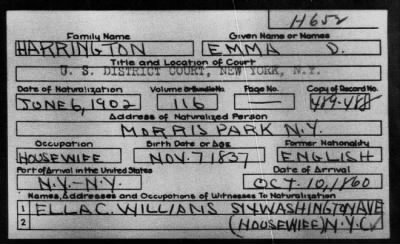 H652
Family Name Given Name or Names
HARRINGTON EMMA D.
Title and Location of Court
U. S. DISTRICT COURT, NEW YORK, N.Y.
Date of Naturalization Volume or Bundle No. Page No. Copy of Record No.
JUNE 6, 1902 116 — 489-488
Address of Naturalized Person
MORRIS PARK N.Y.
Occupation Birth Date or Age Former Nationality
HOUSEWIFE NOV. 7 1837 ENGLISH
Port of Arrival in the United States Date of Arrival
N.Y.-N.Y. OCT. 10, 1860
Names, Addresses and Occupations of Witnesses To Naturalization
1 ELLA C. WILLIANS WASHINGTON AVE
2 (HOUSEWIFE) N.Y.C.